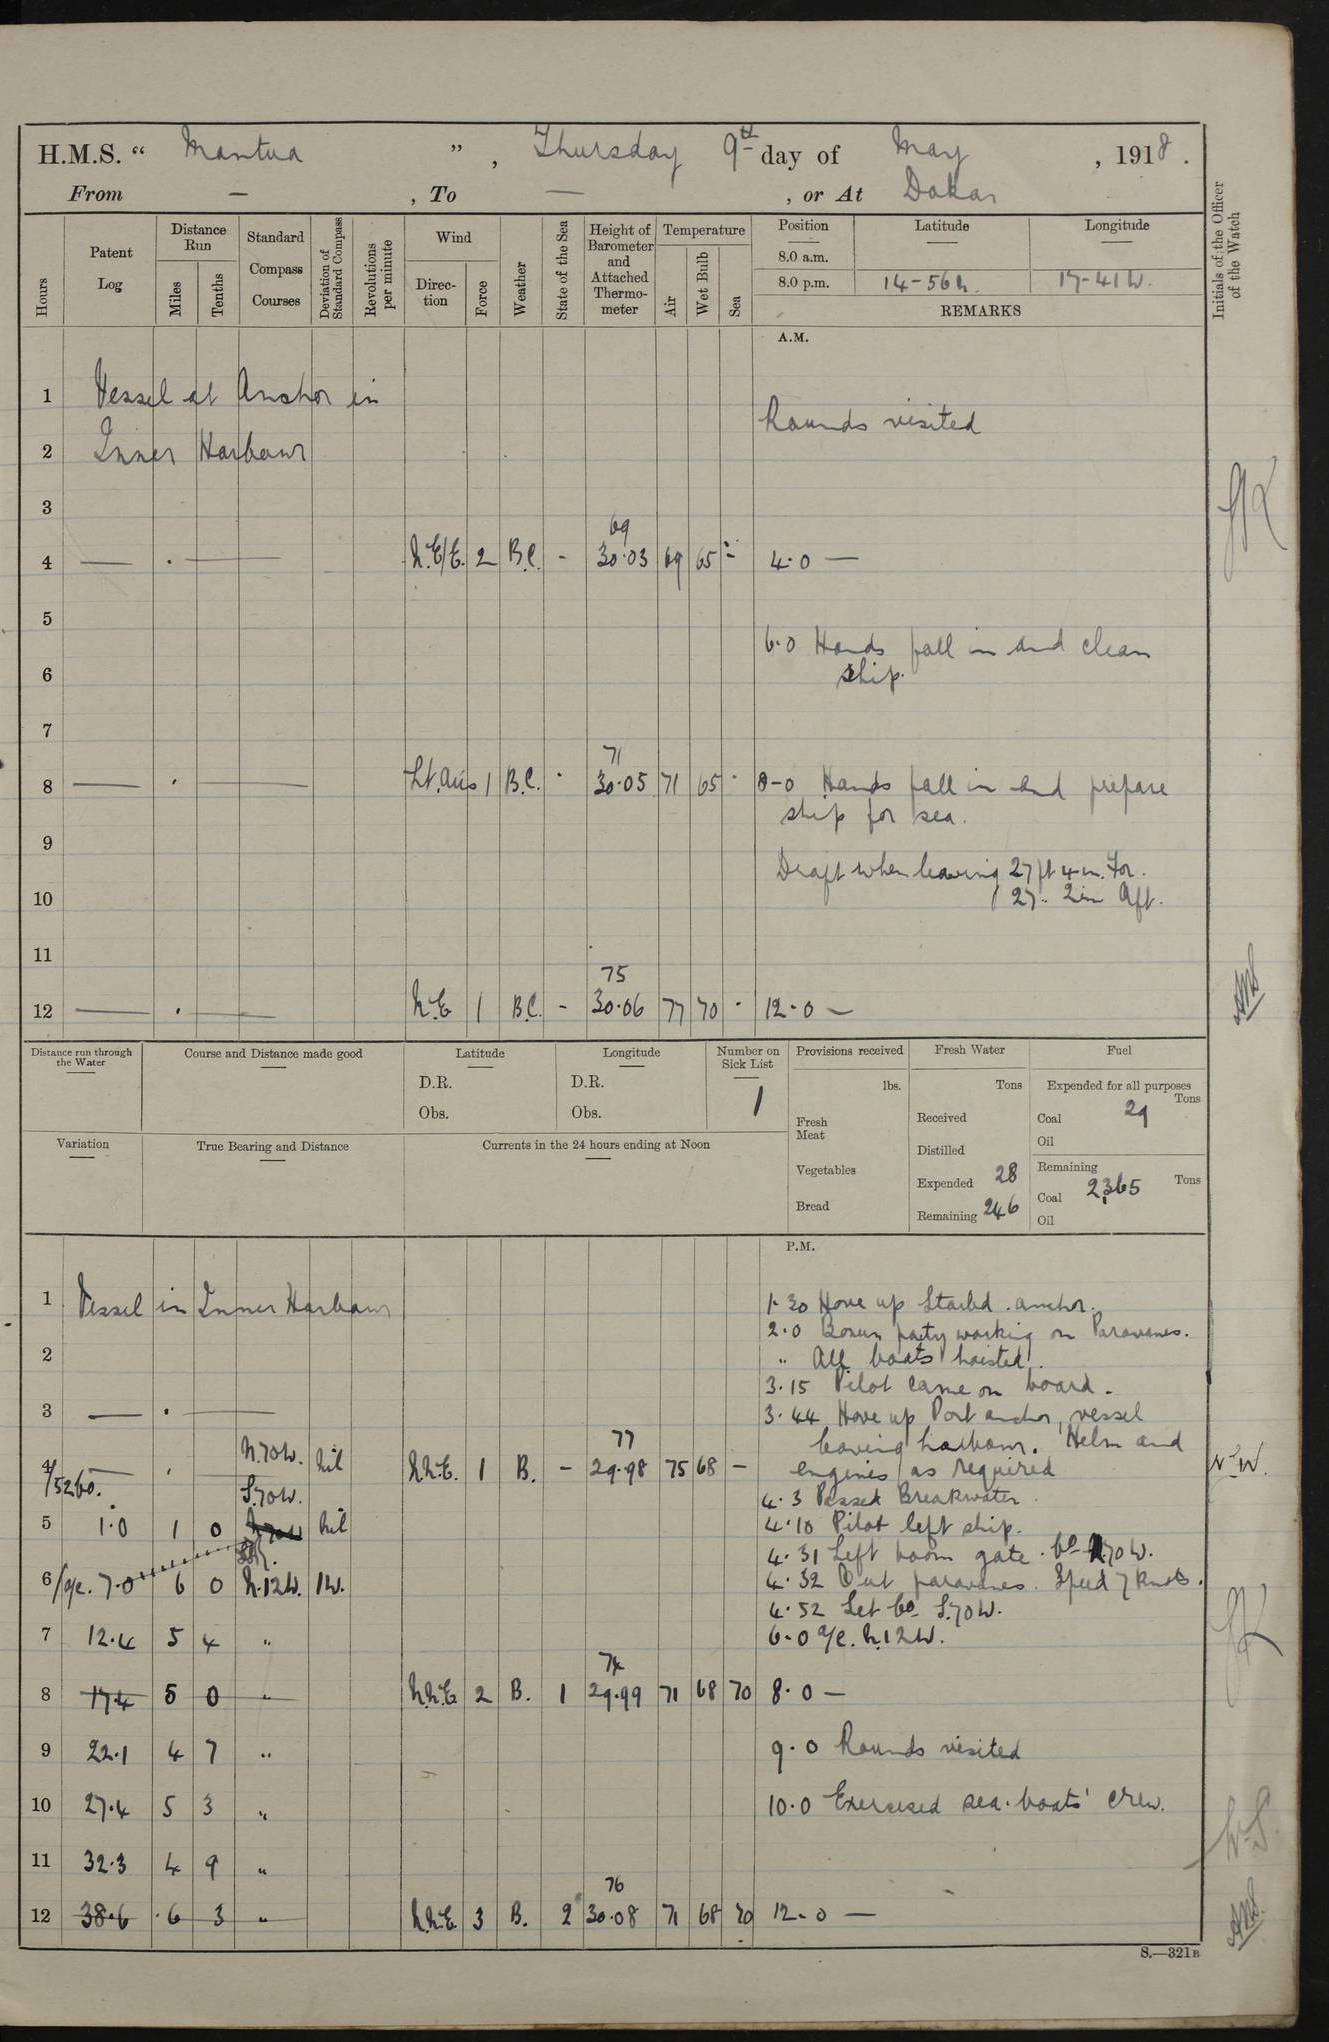 H.M.S. “ Mantua ” , Thursday 9th day of May , 1918 .
From — , To — , or At Dakar
Hours
Patent Log
Distance Run
Miles
Tenths
Standard Compass Courses
Deviation of Standard Compass
Revolutions per minute
Wind
Direction
Force
Weather
State of the Sea
Height of Barometer and Attached Thermometer
Temperature
Air
Wet Bulb
Sea
Position Latitude Longitude
8.0 a.m.
8.0 p.m. 14-56 N. 17-41 W.
REMARKS
Initials of the Officer of the Watch
A.M.
1 Vessel at Anchor in
Rounds visited
2 Inner Harbour
3
69
4 — . — N.E/E. 2 B.C. - 30.03 69 65 - 4.0 —
5
6.0 Hands fall in and clean
6 ship.
7
71
8 — . — Lt. Airs 1 B.C. . 30.05 71 65 . 8-0 Hands fall in and prepare
ship for sea.
9
Draft when leaving 27 ft 4 in. For.
10 27.. 2 in Aft.
11
75
12 — . — N.E 1 B.C. - 30.06 77 70 . 12.0 —
Distance run through the Water
Course and Distance made good
Latitude
D.R.
Obs.
Longitude
D.R.
Obs.
Number on Sick List
1
Variation
True Bearing and Distance
Currents in the 24 hours ending at Noon
Provisions received
lbs.
Fresh Meat
Vegetables
Bread
Fresh Water
Tons
Received
Distilled
Expended 28
Remaining 246
Fuel
Expended for all purposes
Tons
Coal 29
Oil
Remaining
Tons
Coal 2365
Oil
P.M.
1 Vessel in Inner Harbour 1.30 Hove up Starbd. anchor.
2.0 Bosun party working on Paravanes.
2 " All boats hoisted.
3.15 Pilot came on board.
3 — . — 3.44 Hove up Port anchor, vessel
77 leaving harbour. Helm and
4 — . N.70W. nil N.N.E. 1 B. - 29.98 75 68 - engines as required
/52 Co. S.70W. 4.3 Passed Breakwater.
5 1.0 1 0 nil 4.10 Pilot left ship.
4.31 Left boom gate. Co N.70W.
6/a/c. 7.0 6 0 N.12W. 1W. 4.32 Out paravanes. Speed 7 knots.
4.52 Set Co S.70W.
7 12.4 5 4 " 6.0 a/c. N.12W.
74
8 17.4 5 0 " N.N.E 2 B. 1 29.99 71 68 70 8.0 —
9 22.1 4 7 " 9.0 Rounds visited
10 27.4 5 3 " 10.0 Exercised sea.boats' crew.
11 32.3 4 9 "
76
12 38.6 6 3 " N.N.E. 3 B. 2 30.08 71 68 70 12.0 —
S.—321B